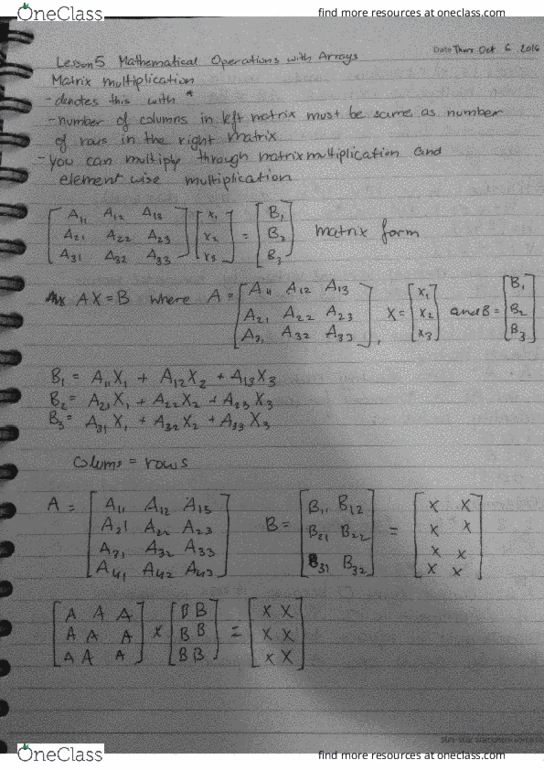 OneClass
find more resources at oneclass.com
Date Thur Oct 6 2016
Lesson 5 Mathematical Operations with Arrays
Matrix multiplication
- denotes this with *
- number of columns in left matrix must be same as number
of rows in the right matrix
- you can multiply through matrix multiplication and
element wise multiplication
[A11 A12 A13] [x1] = [B1]
[A21 A22 A23] [x2] [B2] matrix form
[A31 A32 A33] [x3] [B3]
AX = B where A = [A11 A12 A13] , X = [x1] and B = [B1]
[A21 A22 A23] [x2] [B2]
[A31 A32 A33] [x3] [B3]
B1 = A11X1 + A12X2 + A13X3
B2 = A21X1 + A22X2 + A23X3
B3 = A31X1 + A32X2 + A33X3
colums = rows
A = [A11 A12 A13] B = [B11 B12] = [x x]
[A21 A22 A23] [B21 B22] [x x]
[A31 A32 A33] [B31 B32] [x x]
[A41 A42 A43] [x x]
[A A A] x [B B] = [x x]
[A A A] [B B] [x x]
[A A A] [B B] [x x]
OneClass
find more resources at oneclass.com